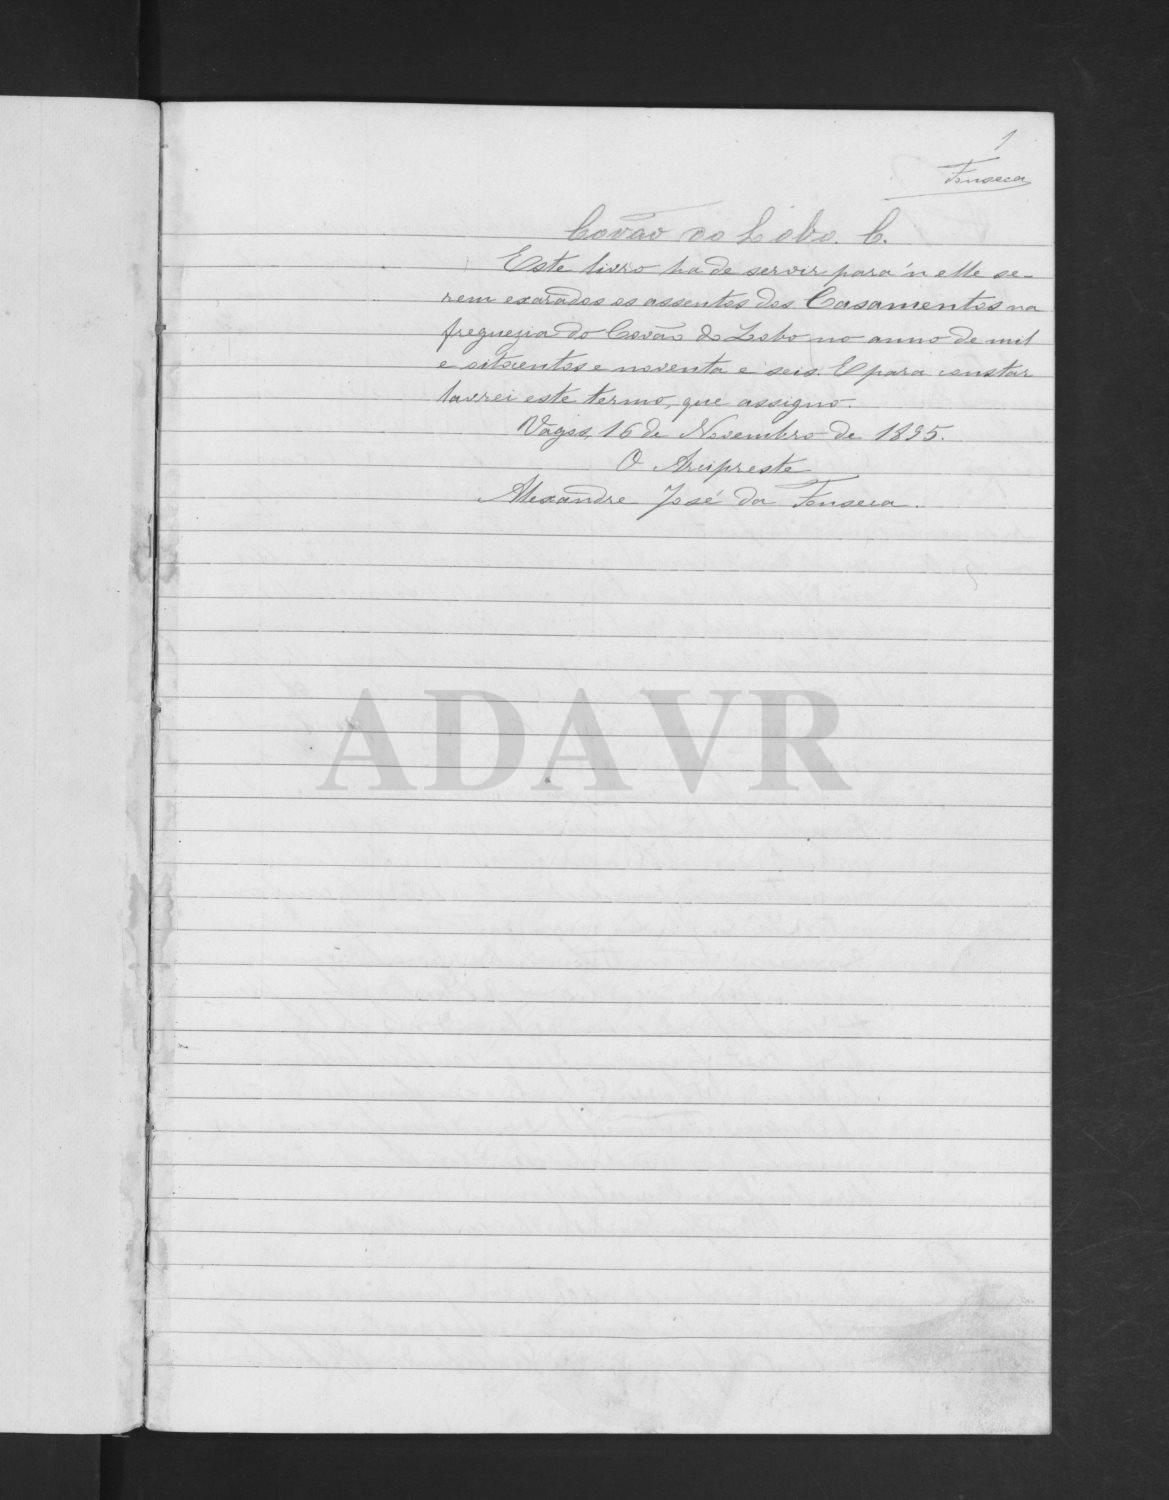 1
Fonseca
Covão do Lobo. C.
Este livro ha de servir para n'elle se-
rem exarados os assentos dos Casamentos na
freguezia do Covão do Lobo no anno de mil
e oitocentos e noventa e seis. E para constar
lavrei este termo, que assigno.
Vagos, 16 de Novembro de 1895.
O Arcipreste
Alexandre José da Fonseca.
ADAVR